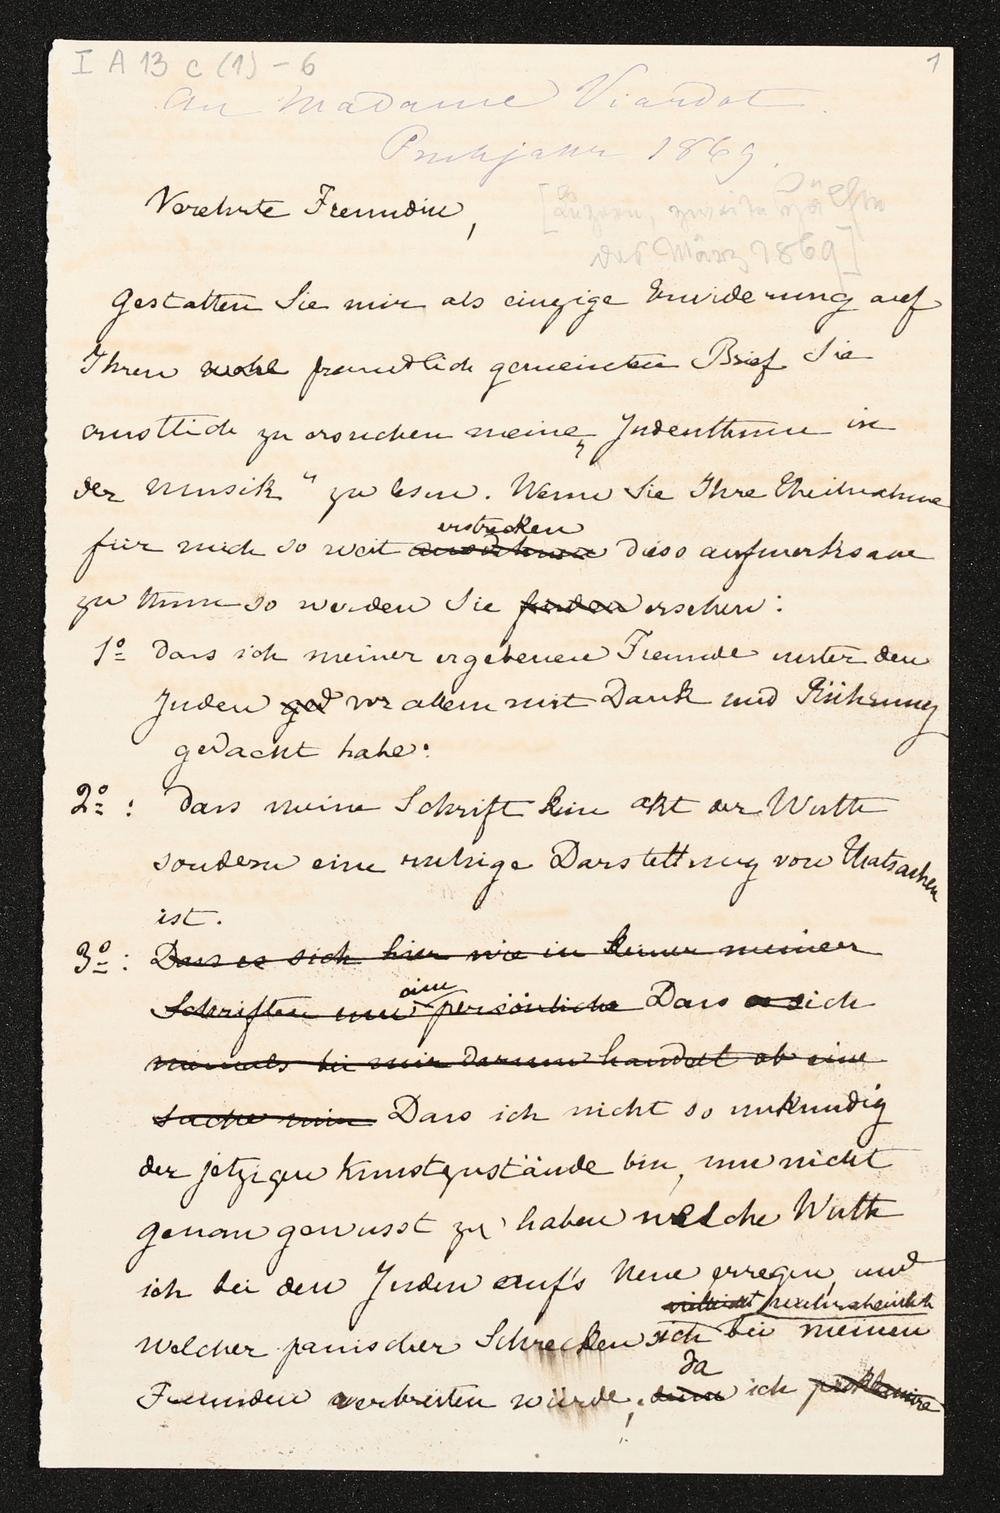 I A 13 c (1) - 6
1
An Madame Viardot.
Frühjahr 1869.
Verehrte Freundin,
[Luzern, zweite Hälfte
des März 1869]
Gestatten Sie mir als einzige Erwiderung auf
Ihren wohl freundlich gemeinten Brief Sie
ernstlich zu ersuchen meine „Judenthum in
der Musik“ zu lesen. Wenn Sie Ihre Theilnahme
erstrecken
für mich so weit ausdehnen dies aufmerksam
zu thun so werden Sie finden ersehen:
1o Dass ich meiner ergebenen Freunde unter den
Juden ged vor allem mit Dank und Rührung
gedacht habe:
2o: Dass meine Schrift kein akt der Wuth
sondern eine ruhige Darstellung von Thatsachen
ist.
3o: Dass es sich hier wie in keiner meiner
eine
Schriften um persönliche Dass es sich
niemals bei mir darum handelt ob eine
Sache mir Dass ich nicht so unkundig
der jetzigen Kunstzustände bin, um nicht
genau gewusst zu haben welche Wuth
ich bei den Juden auf's Neue erregen, und
vielleicht wahrscheinlich
welcher panischer Schrecken sich bei meinen
da
Freunden verbreiten würde; denn ich